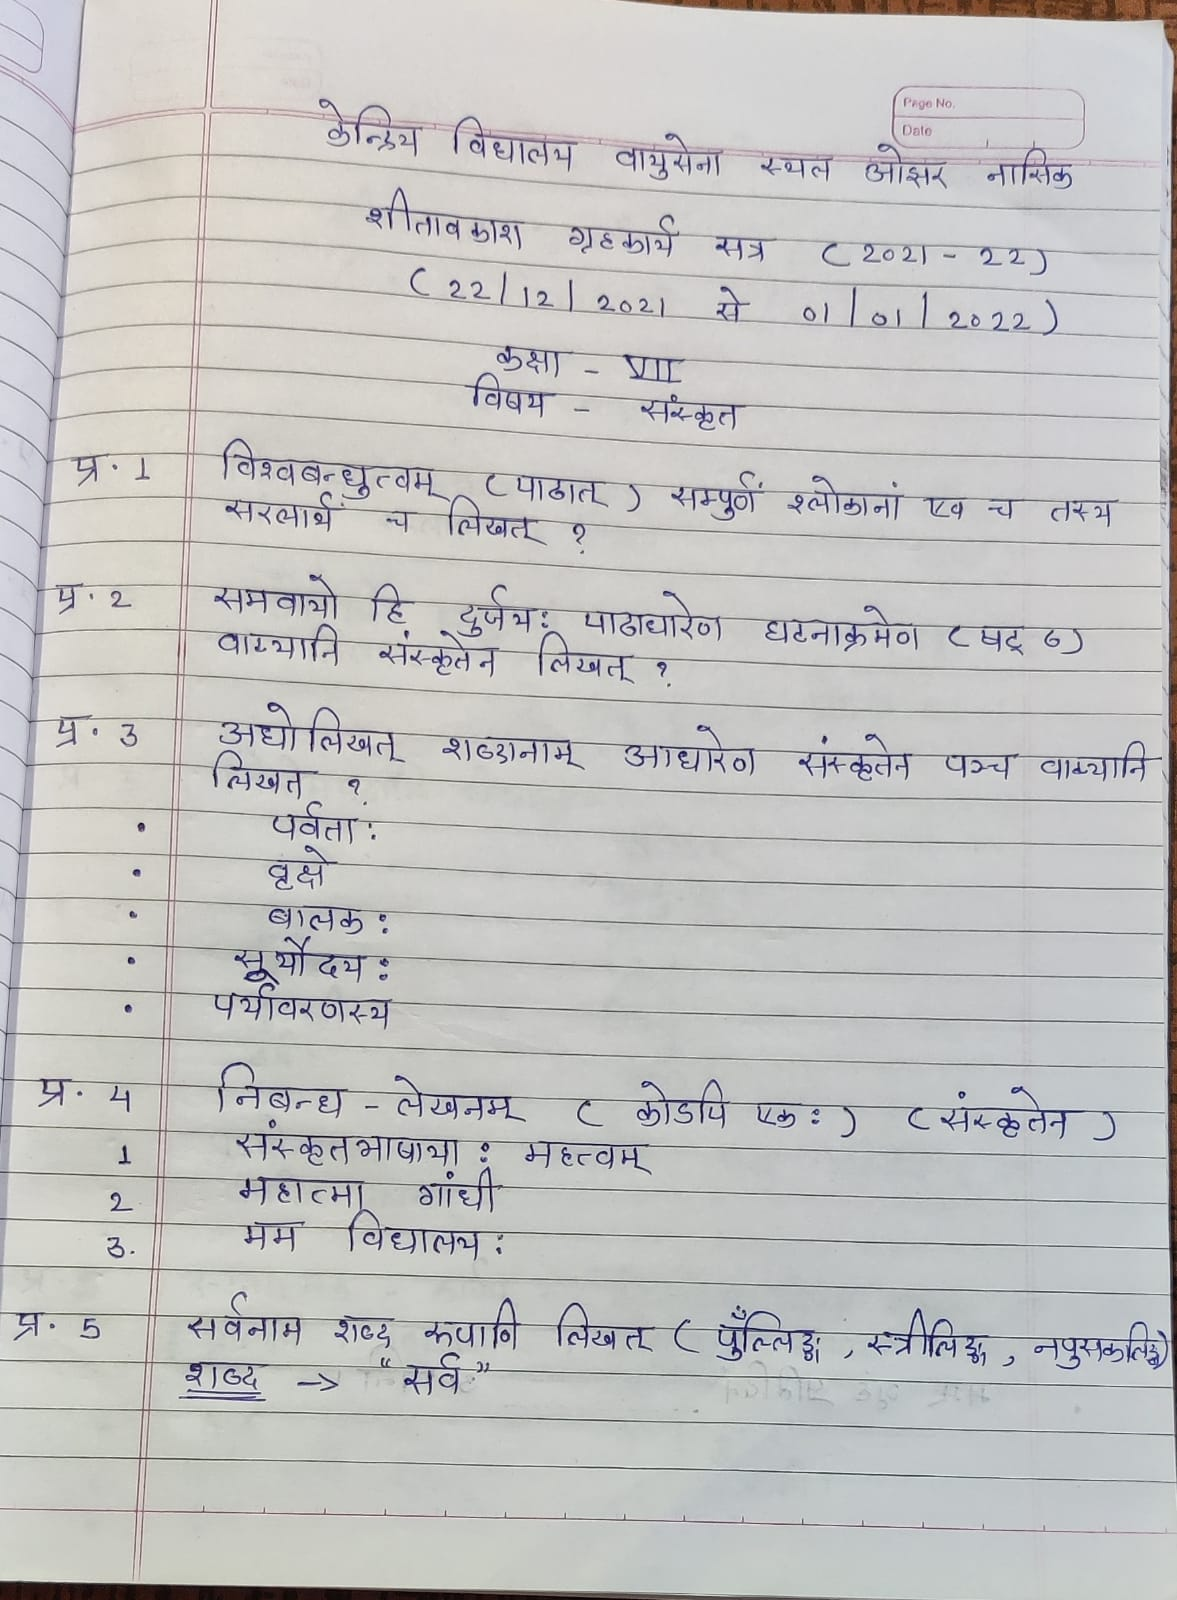 Page No.
Date
केन्द्रिय विद्यालय वायुसेना स्थल ओझर नासिक
शीतावकाश गृहकार्य सत्र (2021-22)
(22/12/2021 से 01/01/2022)
कक्षा - VII
विषय - संस्कृत
प्र. 1 विश्वबन्धुत्वम् (पाठात्) सम्पुर्णं श्लोकानां एव च तस्य
सरलार्थं च लिखत् ?
प्र. 2 समवायो हि दुर्जयः पाठाधारेण घटनाक्रमेण (षट् ६)
वाक्यानि संस्कृतेन लिखत् ?
प्र. 3 अधोलिखत् शब्दानाम् आधारेण संस्कृतेन पञ्च वाक्यानि
लिखत ?
• पर्वताः
• वृक्षे
• बालकः
• सूर्योदयः
• पर्यावरणस्य
प्र. 4 निबन्ध - लेखनम् (कोडपि एकः) (संस्कृतेन)
1 संस्कृतभाषायाः महत्वम्
2 महात्मा गांधी
3. मम विद्यालयः
प्र. 5 सर्वनाम शब्द रूपाणि लिखत् (पुँल्लिङ्ग, स्त्रीलिङ्ग, नपुसकलिङ्ग)
शब्द → "सर्व"